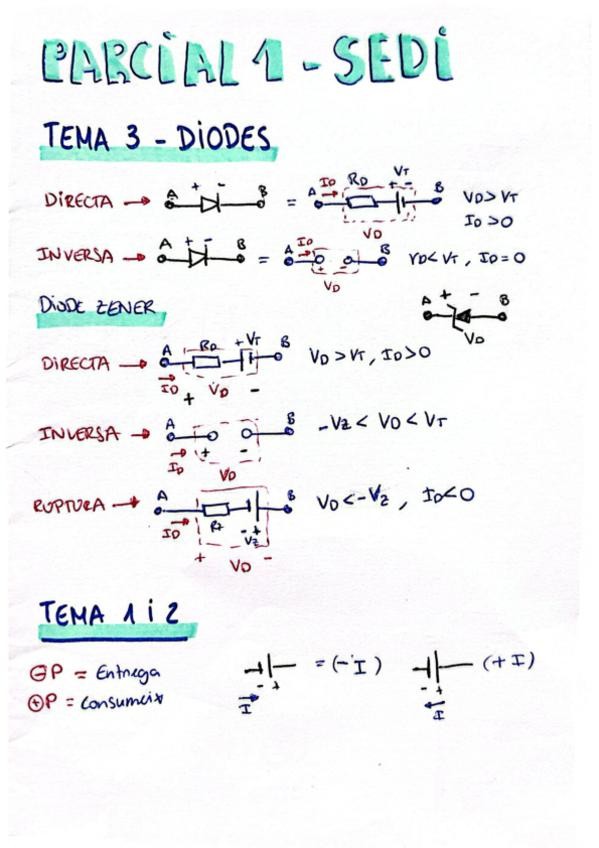 PARCIAL 1 - SEDI
TEMA 3 - DIODES
DIRECTA → A + - B = A ID RD VT + - B VD > VT
VD ID > 0
INVERSA → A + - B = A ID + - B VD < VT, ID = 0
VD
DIODE ZENER A + - B
VD
DIRECTA → A RD + VT B VD > VT, ID > 0
ID + VD -
INVERSA → A + - B -VZ < VD < VT
ID VD
RUPTURA → A B VD < -VZ, ID < 0
ID - + VZ
+ VD -
TEMA 1 i 2
⊖P = Entrega - + = (-I) - + (+I)
⊕P = Consumeix I I